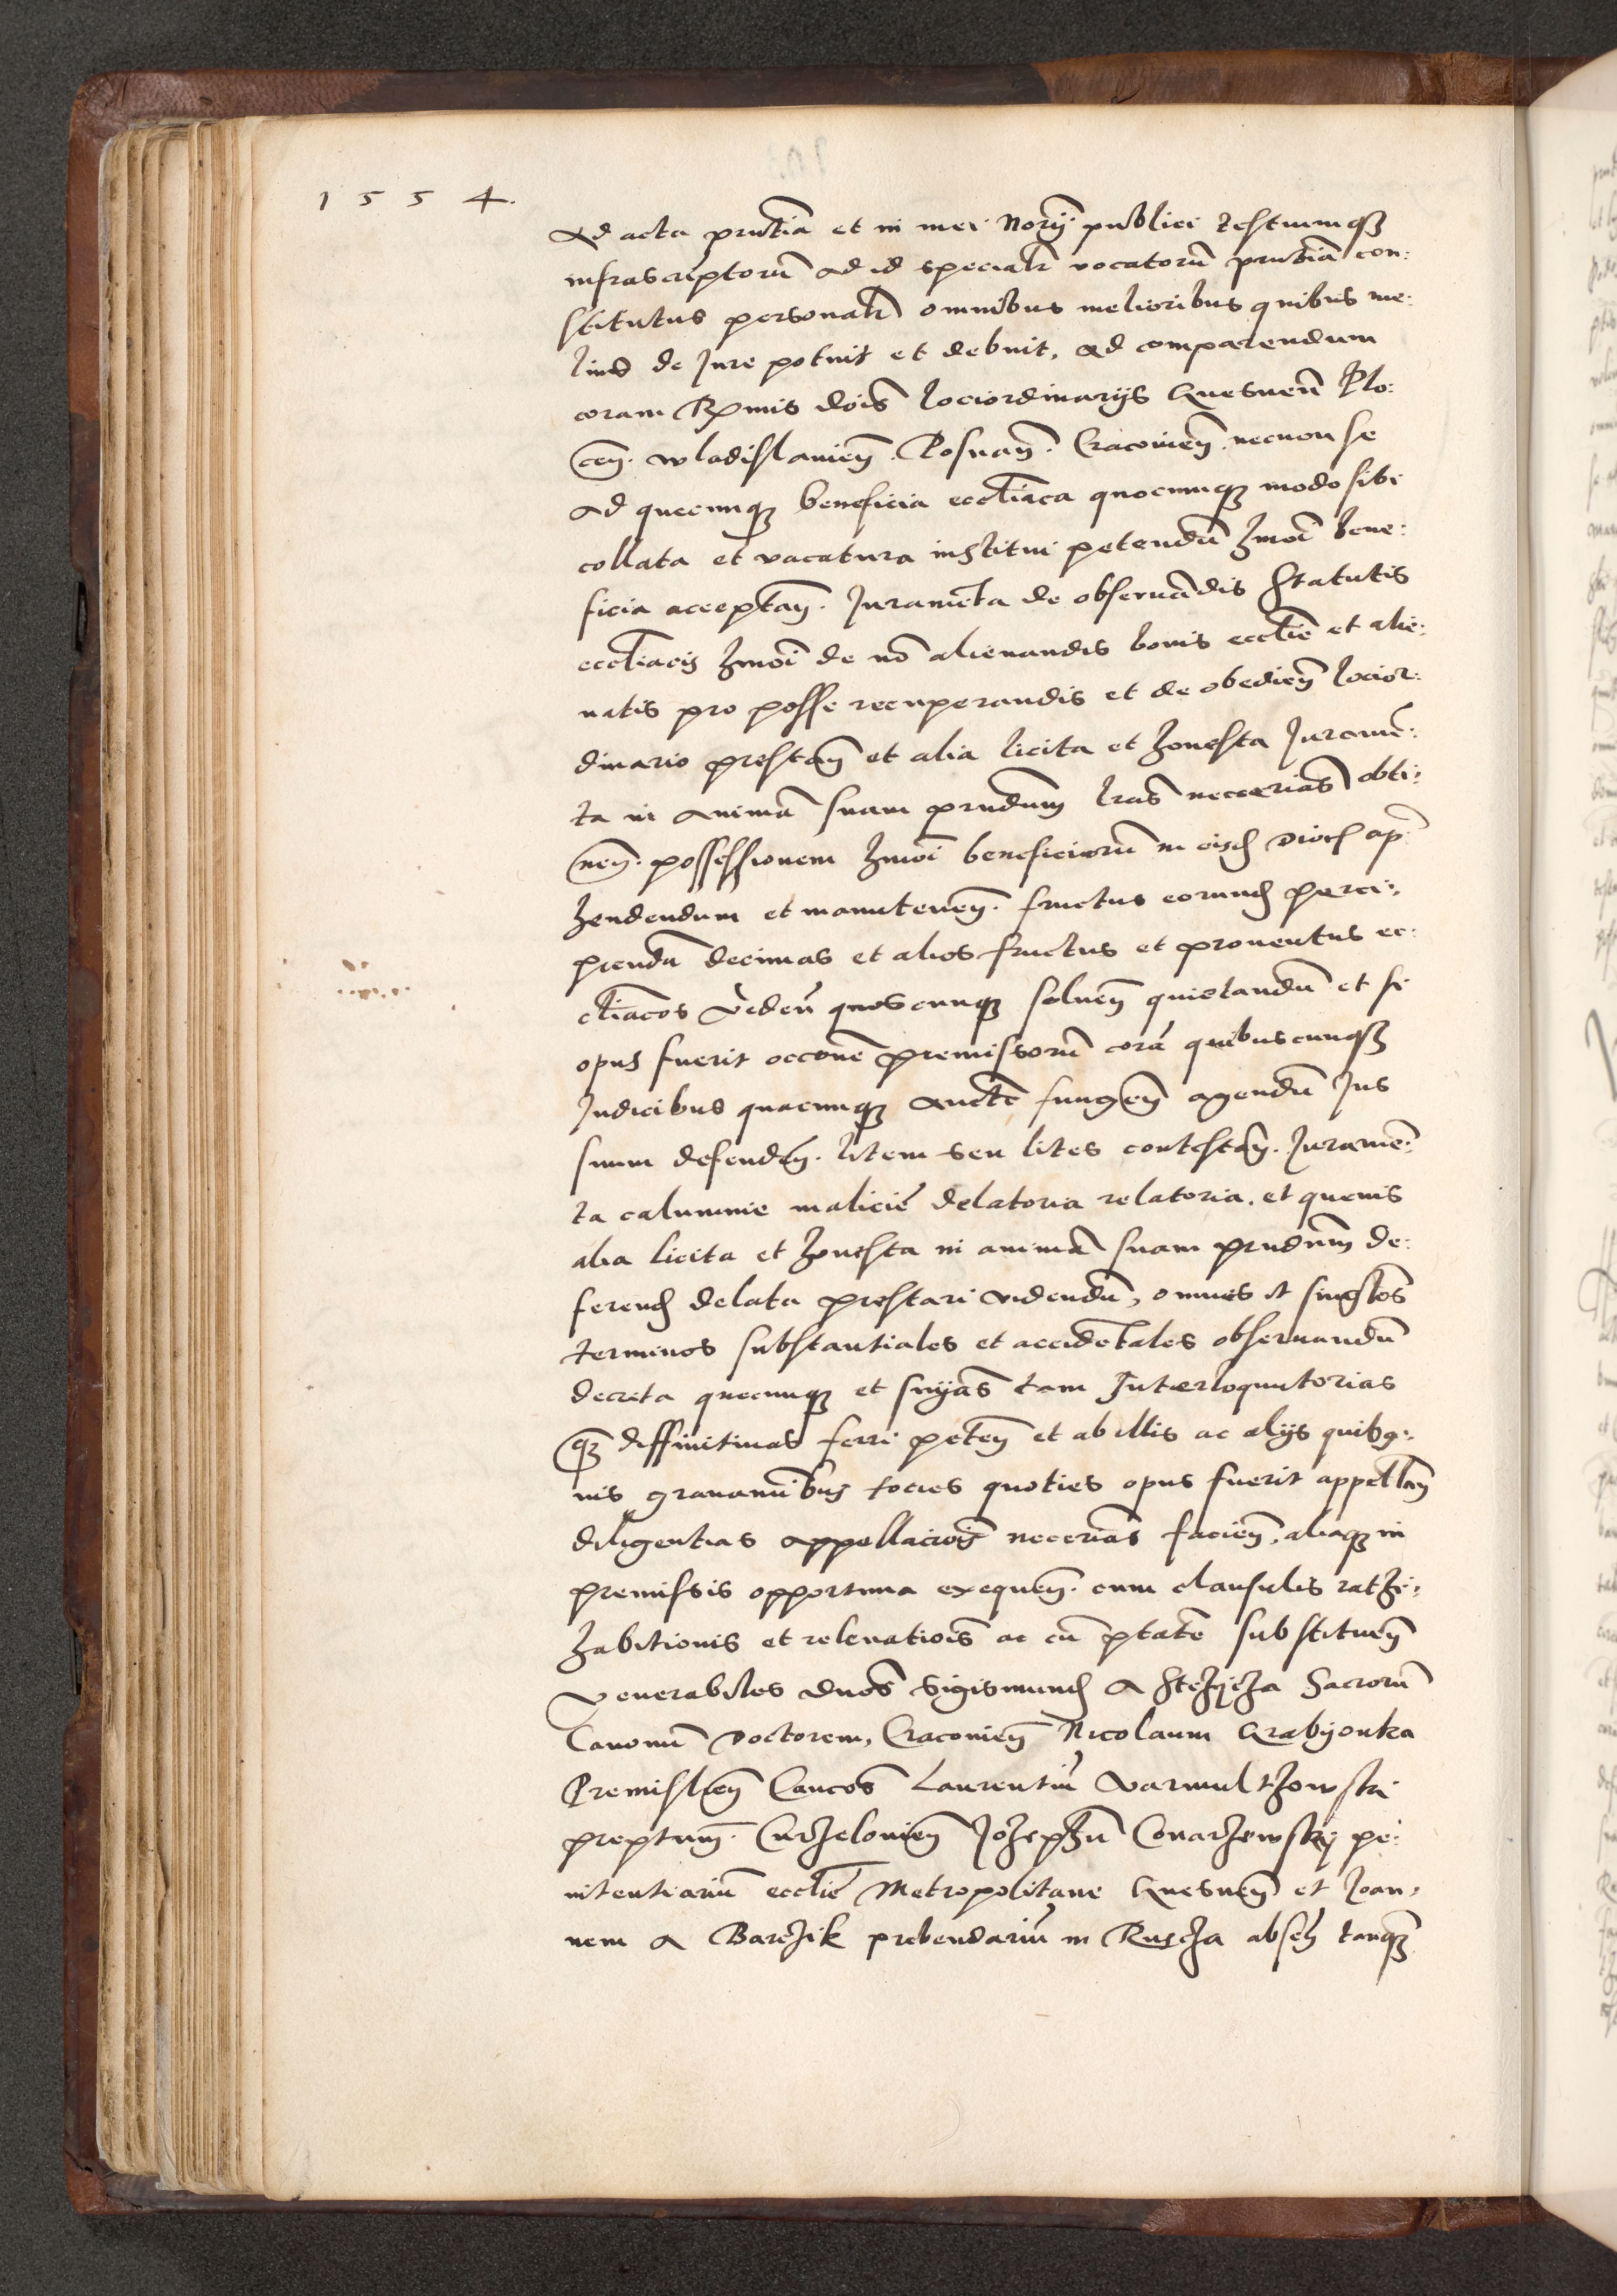 1554.
Ad acta pñtia et in mei Norij publici testiumqꝫ
infrascriptorũ ad id specialr vocatorũ pñtia con:
stitutus personalr omnibus melioribus quibus me:
lius de Jure potuit et debuit, ad comparendum
coram Rmis dois lociordinarijs Gnesnen Plo:
cen. wladislavien. Posnan. Cracovien. necnon se
ad quecunqꝫ beneficia eccliaca quocunqꝫ modo sibi
collata et vacatura institui petendũ hmoi bene:
ficia acceptan. Juramẽta de observãdis Statutis
eccliacis hmoi de nõ alienandis bonis ecclie et alie:
natis pro posse recuperandis et de obedien locior:
dinario prestan et alia licita et honesta Juramẽ:
ta in animã suam prndum lras neccerias obti:
nen. possessionem hmoi beneficiorũ in eisd dioc ap:
hendendum et manutenen. fructus eorund perci:
piendũ decimas et alios fructus et proventus ec:
cliacos quoscunqꝫ solven quietandũ et si
opus fuerit occone premissorũ corã quibuscunqꝫ
Judicibus quacunqꝫ aucte fungen agendũ Jus
suum defenden. litem seu lites contestan. Juramẽ:
ta calumnie malicie delatoria relatoria. et quevis
alia licita et honesta in animã suam prndum de:
ferend delata prestari videndũ, omnes et singlos
terminos substantiales et accidẽtales observandũ
decreta quecunqꝫ et snias tam Interloquutorias
qꝫ diffinitivas ferri peten et ab illis ac alijs quibq:
vis gravamibus tocies quoties opus fuerit appellan
diligentias appellaciois necerias facien, aliaqꝫ in
premissis opportuna exequen. cum clausulis rathi:
habitionis et relevatiois ac cũ ptate substituen
Venerabiles dnos Sigismund a Stezicza Sacrorũ
Canonũ doctorem, Cracovien Nicolaum Grabyonka
Premislien Cancos Laurentiũ Varmultzowski
preptum. Curzelovien Jozephũ Conarzewskij pe:
nitentiariũ ecclie Metropolitane Gnesnen et Joan:
nem a Barczik prebendariũ in Ruscza absen tanqꝫ